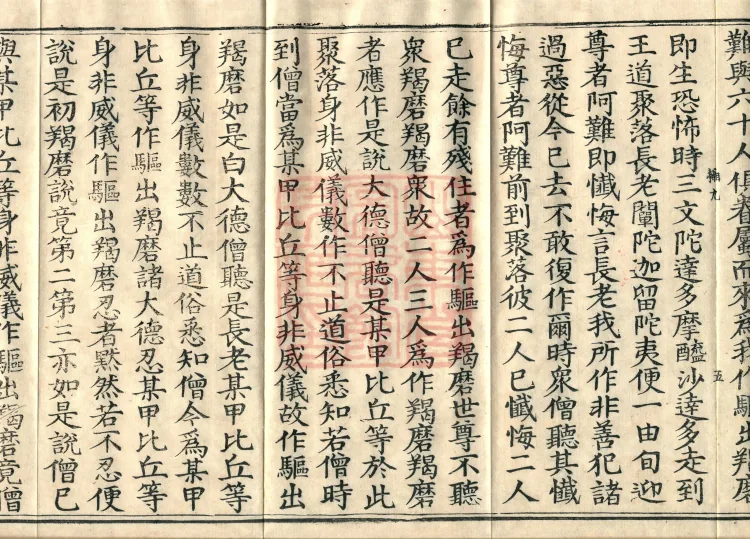 難與六十人俱眷屬而來爲我作驅出羯磨
即生恐怖時三文陀達多摩醯沙達多走到
王道聚落長老闡陀迦留陀夷便一由旬迎
尊者阿難即懺悔言長老我所作非善犯諸
過惡從今已去不敢復作爾時衆僧聽其懺
悔尊者阿難前到聚落彼二人已懺悔二人
已走餘有殘住者爲作驅出羯磨世尊不聽
衆羯磨羯磨衆故二人三人爲作羯磨羯磨
者應作是說大德僧聽是某甲比丘等於此
聚落身非威儀數作不止道俗悉知若僧時
到僧當爲某甲比丘等身非威儀故作驅出
羯磨如是白大德僧聽是長老某甲比丘等
身非威儀數數不止道俗悉知僧今爲某甲
比丘等作驅出羯磨諸大德忍某甲比丘等
身非威儀作驅出羯磨忍者默然若不忍便
說是初羯磨說竟第二第三亦如是說僧已
與某甲比丘等身非威儀作驅出羯磨竟僧
五